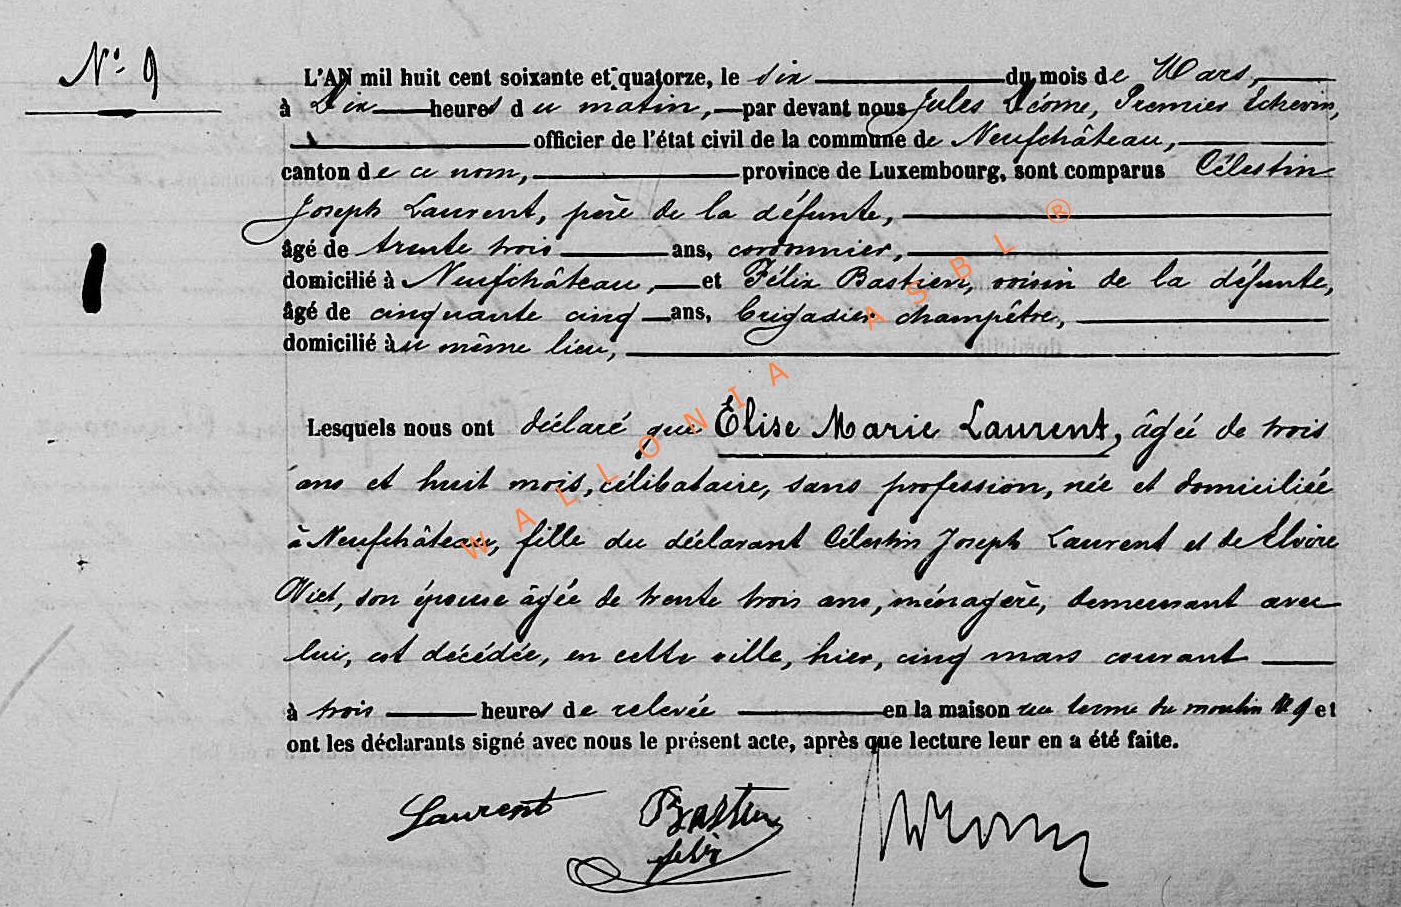 N° 9
L'AN mil huit cent soixante et quatorze, le six du mois de Mars,
à Dix heures du matin, par devant nous Jules Déome, Premier Echevin,
officier de l'état civil de la commune de Neufchâteau,
canton de ce nom, province de Luxembourg, sont comparus Célestin
Joseph Laurent, père de la défunte,
âgé de trente trois ans, cordonnier,
domicilié à Neufchâteau, et Félix Bastien, voisin de la défunte,
âgé de cinquante cinq ans, Brigadier champêtre,
domicilié au même lieu,
Lesquels nous ont déclaré que Elise Marie Laurent, âgée de trois
ans et huit mois, célibataire, sans profession, née et domiciliée
à Neufchâteau, fille du déclarant Célestin Joseph Laurent et de Elvire
son épouse âgée de trente trois ans, ménagère, demeurant avec
lui, est décédée, en cette ville, hier, cinq mars courant
à trois heures de relevée en la maison rue terme du moulin N 9 et
ont les déclarants signé avec nous le présent acte, après que lecture leur en a été faite.
Laurent Bastien
felix
WALLONIA ASBL ®